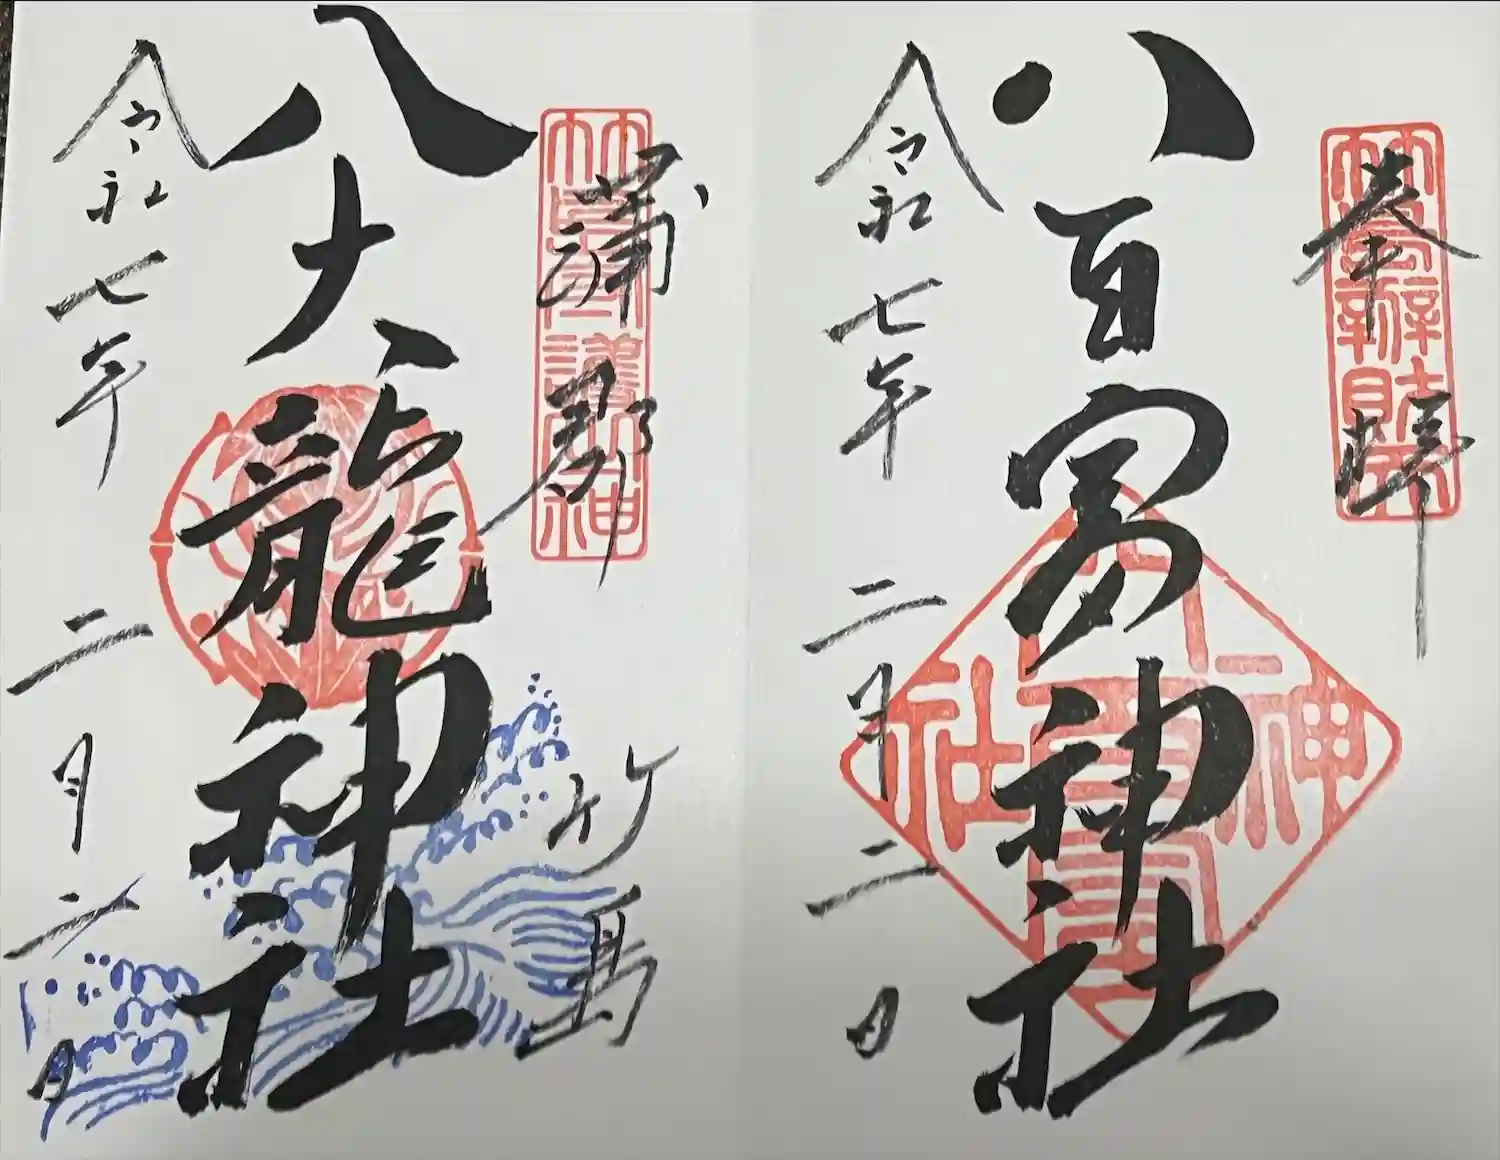 奉拝
八百富神社
令和七年二月二日
蒲郡 竹島
八大龍神社
令和七年二月二日